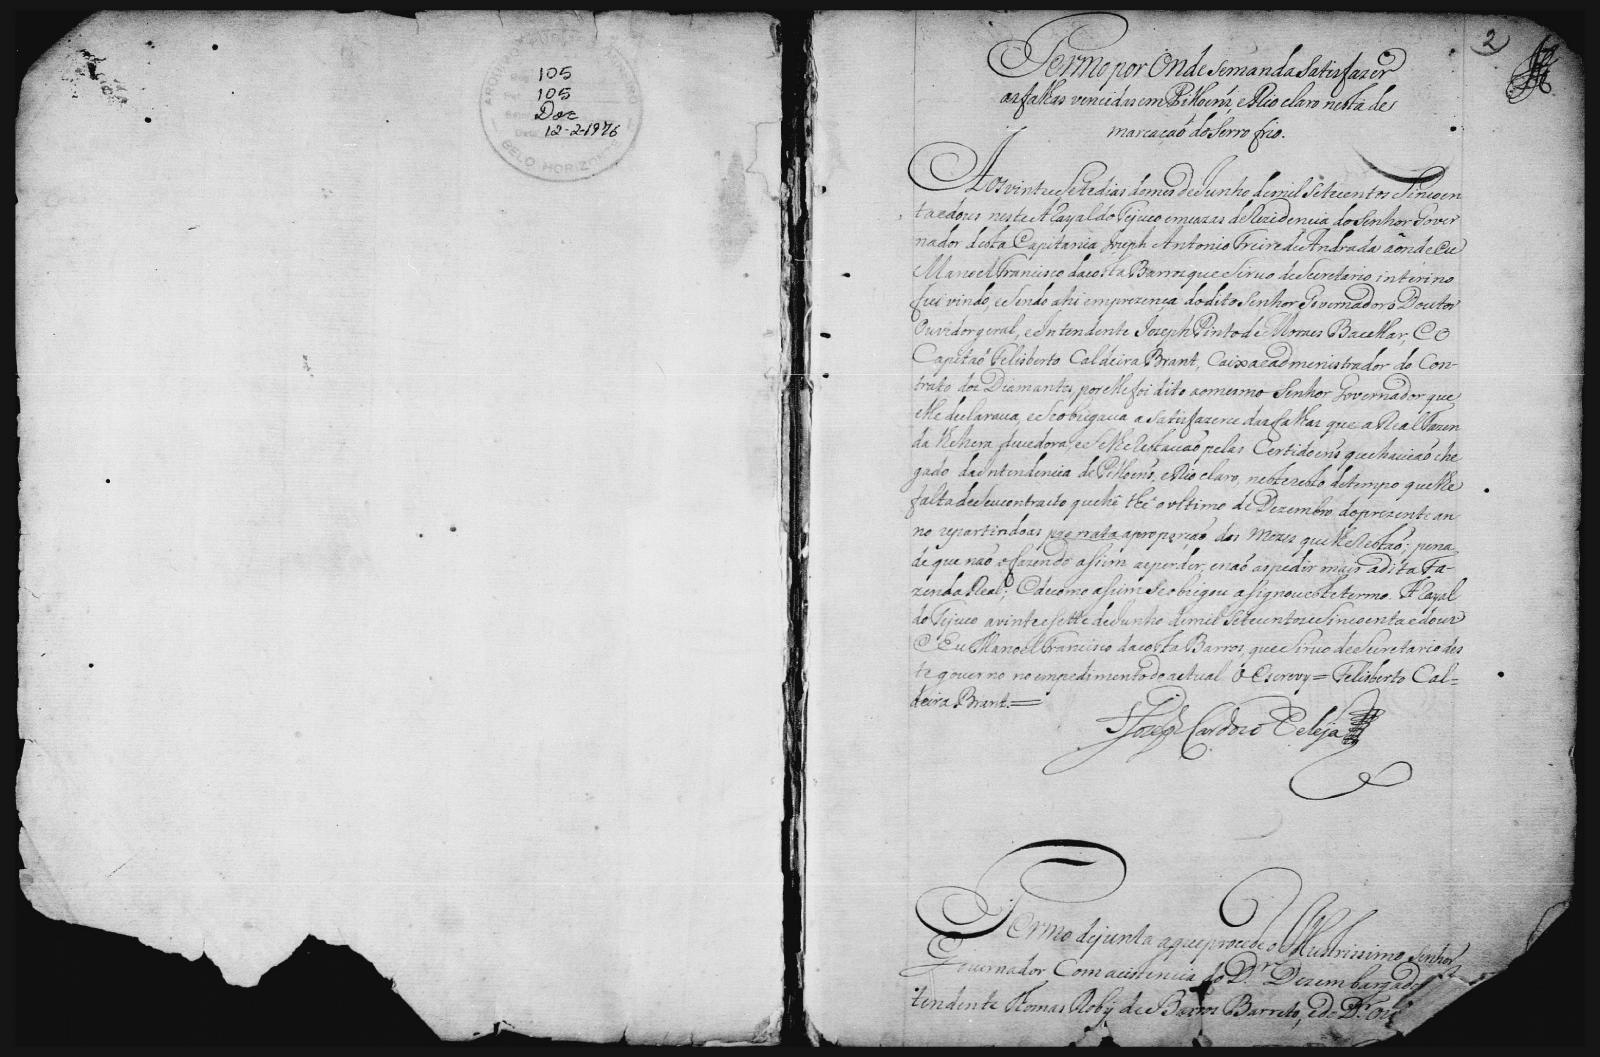 ARQUIVO PÚBLICO MINEIRO
105
105
Doc
12-2-1976
BELO HORIZONTE
2
Termo por Onde semanda Satisfazer
as faltas vencidas em Pitloens, e Rio claro nesta de
marcaçaõ do Serro frio.
Aos vinte e Sete dias do mes de Junho de mil Setecentos Sincoen
ta e dous neste Arayal do Tejuco em cazas de Rezidencia do Senhor Gover
nador desta Capitania Joseph Antonio Freire de Andrada aonde eu
Manoel Francisco da costa Barros que Siruo de Secretario interino
fui vindo, e Sendo ahi em prezença do dito Senhor Governador o Doutor
Ouvidor geral, e Intendente Joseph Pinto de Moraes Bacellar, e o
Capitaõ Felisberto Caldeira Brant, Caixa e administrador do Con-
trato dos Diamantes, por elle foi dito ao mesmo Senhor Governador que
elle declaraua, e Se obrigaua a Satisfazer as faltas que a Real Fazen
da lhe hera devedora, e Se lhe Restauaõ pelas Certidoens que hauiaõ che
gado da Intendencia de Pitloens, e Rio claro, neste resto de tempo que lhe
falta de Seu contracto que hé thé o ultimo de Dezembro do prezente an
no repartindo as pro rata a proporçaõ dos mezes que lhe Restaõ; pena
de que naõ o fazendo assim as perder, e naõ as pedir mais a dita Fa-
zenda Real; E de como assim Se obrigou asignou este termo. Arayal
do Tejuco a vinte e Sette de Junho de mil Setecentos e Sincoenta e dous
E Eu Manoel Francisco da costa Barros, que Siruo de Secretario des
te gouerno no empedimento do actual o Escrevy = Felisberto Cal=
deira Brant.=
Joseph Cardozo Peleja
Termo de junta a que procedeo o Illustrissimo Senhor
Governador Com acistencia do D.r Dezembargador
tendente Thomas Roby de Barros Barreto, e do D.r Ou